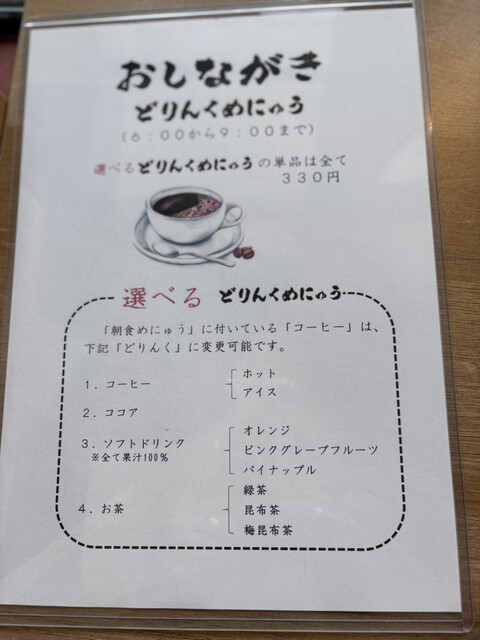 おしながき
どりんくめにゅう
(6：00から9：00まで)
選べるどりんくめにゅうの単品は全て
330円
選べる どりんくめにゅう
「朝食めにゅう」に付いている「コーヒー」は、
下記「どりんく」に変更可能です。
1．コーヒー
ホット
アイス
2．ココア
3．ソフトドリンク
※全て果汁100％
オレンジ
ピンクグレープフルーツ
パイナップル
4．お茶
緑茶
昆布茶
梅昆布茶